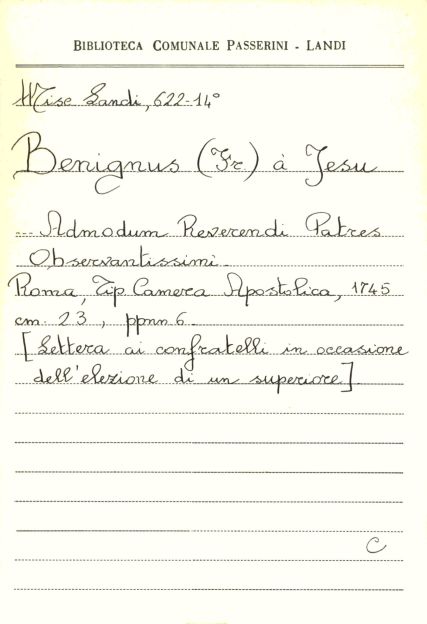 BIBLIOTECA COMUNALE PASSERINI - LANDI
Misc Landi, 622-14°
Benignus (Fr.) à Jesu
--- Admodum Reverendi Patres
Observantissimi.
Roma, Tip Camera Apostolica, 1745
cm. 23, ppnn. 6.
[Lettera ai confratelli in occasione
dell'elezione di un superiore].
C